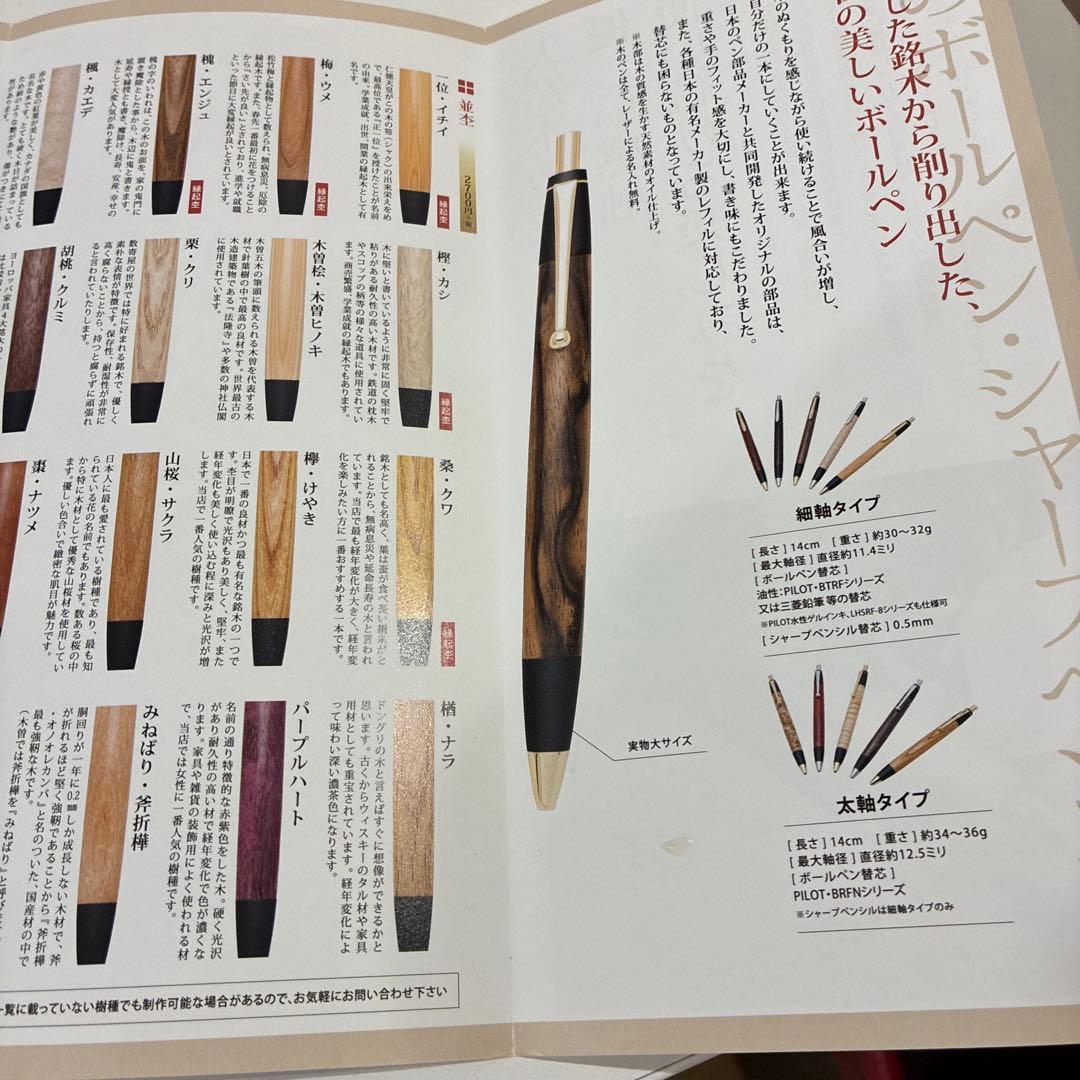 ボールペン・シャープペン
した銘木から削り出した、
の美しいボールペン
のぬくもりを感じながら使い続けることで風合いが増し、
自分だけの一本にしていくことが出来ます。
日本のペン部品メーカーと共同開発したオリジナルの部品は、
重さや手のフィット感を大切にし、書き味にもこだわりました。
また、各種日本の有名メーカー製のレフィルに対応しており、
替芯にも困らないものとなっています。
※木部は木の質感を生かす天然素材のオイル仕上げ。
※木のペンは全て、レーザーによる名入れ無料。
細軸タイプ
[ 長さ ] 14cm [ 重さ ] 約30〜32g
[ 最大軸径 ] 直径約11.4ミリ
[ ボールペン替芯 ]
油性:PILOT・BTRFシリーズ
又は三菱鉛筆等の替芯
※PILOT水性ゲルインキ、LHSRF-8シリーズも仕様可
[ シャープペンシル替芯 ] 0.5mm
太軸タイプ
[ 長さ ] 14cm [ 重さ ] 約34〜36g
[ 最大軸径 ] 直径約12.5ミリ
[ ボールペン替芯 ]
PILOT・BRFNシリーズ
※シャープペンシルは細軸タイプのみ
実物大サイズ
並杢
2700円+税
一位・イチイ
縁起杢
仁徳天皇がこの木の笏(シャク)の出来栄えをめ
で、最高位である「正一位」を授けたことが名前
の由来。学業成就、出世、開業の縁起木として有
名です。
梅・ウメ
縁起杢
松竹梅と縁起物として数えられ、無病息災、厄除の
縁起木です。また、春先一番最初に花をつけること
から「さい先が良い」とされており、進学や就職
といった節目に大変縁起が良いとされています。
槐・エンジュ
縁起杢
槐の字のいわれは、この木のお面を、家の鬼門に
置き魔除とした事から、木辺に鬼と書きます。
延寿や縁授とも書き、魔除け、長寿、安産、幸せの
木として大変人気があります。
楓・カエデ
赤や黄色の紅葉が美しく、カナダの国旗としても
有名な木です。とても硬く木目が詰まっている
樫・カシ
縁起杢
木に堅いと書いているように非常に固く堅牢で
粘りがある耐久性の高い木材です。鉄道の枕木
やスコップの柄等の様々な道具に使用されてい
ます。商売繁盛、学業成就の縁起木でもあります。
木曽桧・木曽ヒノキ
木曽五木の筆頭に数えられる木曽を代表する木
材で針葉樹の中で最高の良材です。世界最古の
木造建築物である『法隆寺』や多数の神社仏閣
に使用されています。
栗・クリ
数寄屋の世界では特に好まれる銘木で、優しく
素朴な表情が特徴です。保存性、耐湿性が非常に
高く腐らないことから、持つと腐らずに頑張れ
ると言われていたりします。
胡桃・クルミ
ヨーロッパ家具4大銘木の
桑・クワ
縁起杢
銘木としても名高く、葉は蚕が食べ長い絹糸がと
れることから、無病息災や延命長寿の木と言われ
ています。当店で最も経年変化が大きく、経年変
化を楽しみたい方に一番おすすめする一本です。
欅・けやき
日本で一番の良材かつ最も有名な銘木の一つで
す。杢目が明瞭で光沢もあり美しく、堅牢、また
経年変化も美しく使い込む程に深みと光沢が増
します。当店で一番人気の樹種です。
山桜・サクラ
日本人に最も愛されている樹種であり、最も知
られている花の名前でもあります。数ある桜の中
から特に木材として優秀な山桜材を使用してい
ます。優しい色合いで緻密な肌目が魅力です。
棗・ナツメ
楢・ナラ
ドングリの木と言えばすぐに想像ができるかと
思います。古くからウィスキーのタル材や家具
用材としても重宝されています。経年変化によ
って味わい深い濃茶色になります。
パープルハート
名前の通り特徴的な赤紫色をした木。硬く光沢
があり耐久性の高い材で経年変化で色が濃くな
ります。家具や雑貨の装飾用によく使われる材
で、当店では女性に一番人気の樹種です。
みねばり・斧折樺
胴回りが一年に0.2㎜しか成長しない木材で、斧
が折れるほど堅く強靭であることから『斧折樺
・オノオレカンバ』と名のついた、国産材の中で
最も強靭な木です。
(木曽では斧折樺を『みねばり』と呼びます
一覧に載っていない樹種でも制作可能な場合があるので、お気軽にお問い合わせ下さい